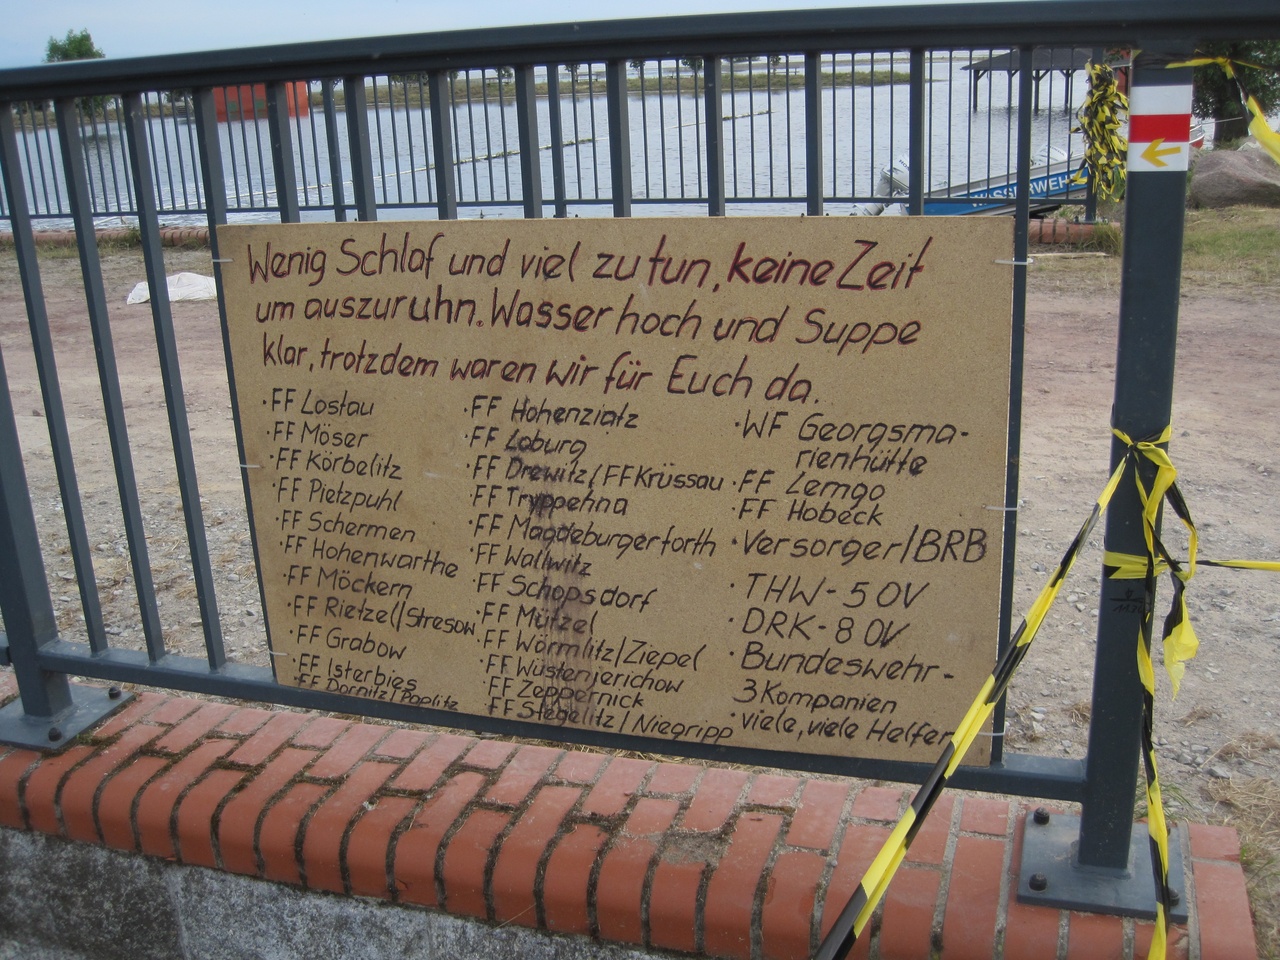 WASSERWEHR
Wenig Schlaf und viel zu tun, keine Zeit
um auszuruhn. Wasser hoch und Suppe
klar, trotzdem waren wir für Euch da.
·FF Lostau
·FF Möser
·FF Körbelitz
·FF Pietzpuhl
·FF Schermen
·FF Hohenwarthe
·FF Möckern
·FF Rietzel/Stresow
·FF Grabow
·FF Isterbies
·FF Dörnitz/Päplitz
·FF Hohenziatz
·FF Loburg
·FF Drewitz/FF Krüssau
·FF Tryppehna
·FF Magdeburgerforth
·FF Wallwitz
·FF Schopsdorf
·FF Mützel
·FF Wörmlitz/Ziepel
·FF Wüstenjerichow
·FF Zeppernick
·FF Stegelitz/Niegripp
·WF Georgsma-
rienhütte
·FF Lemgo
·FF Hobeck
·Versorger/BRB
·THW-5 OV
·DRK-8 OV
·Bundeswehr-
3 Kompanien
·viele, viele Helfer